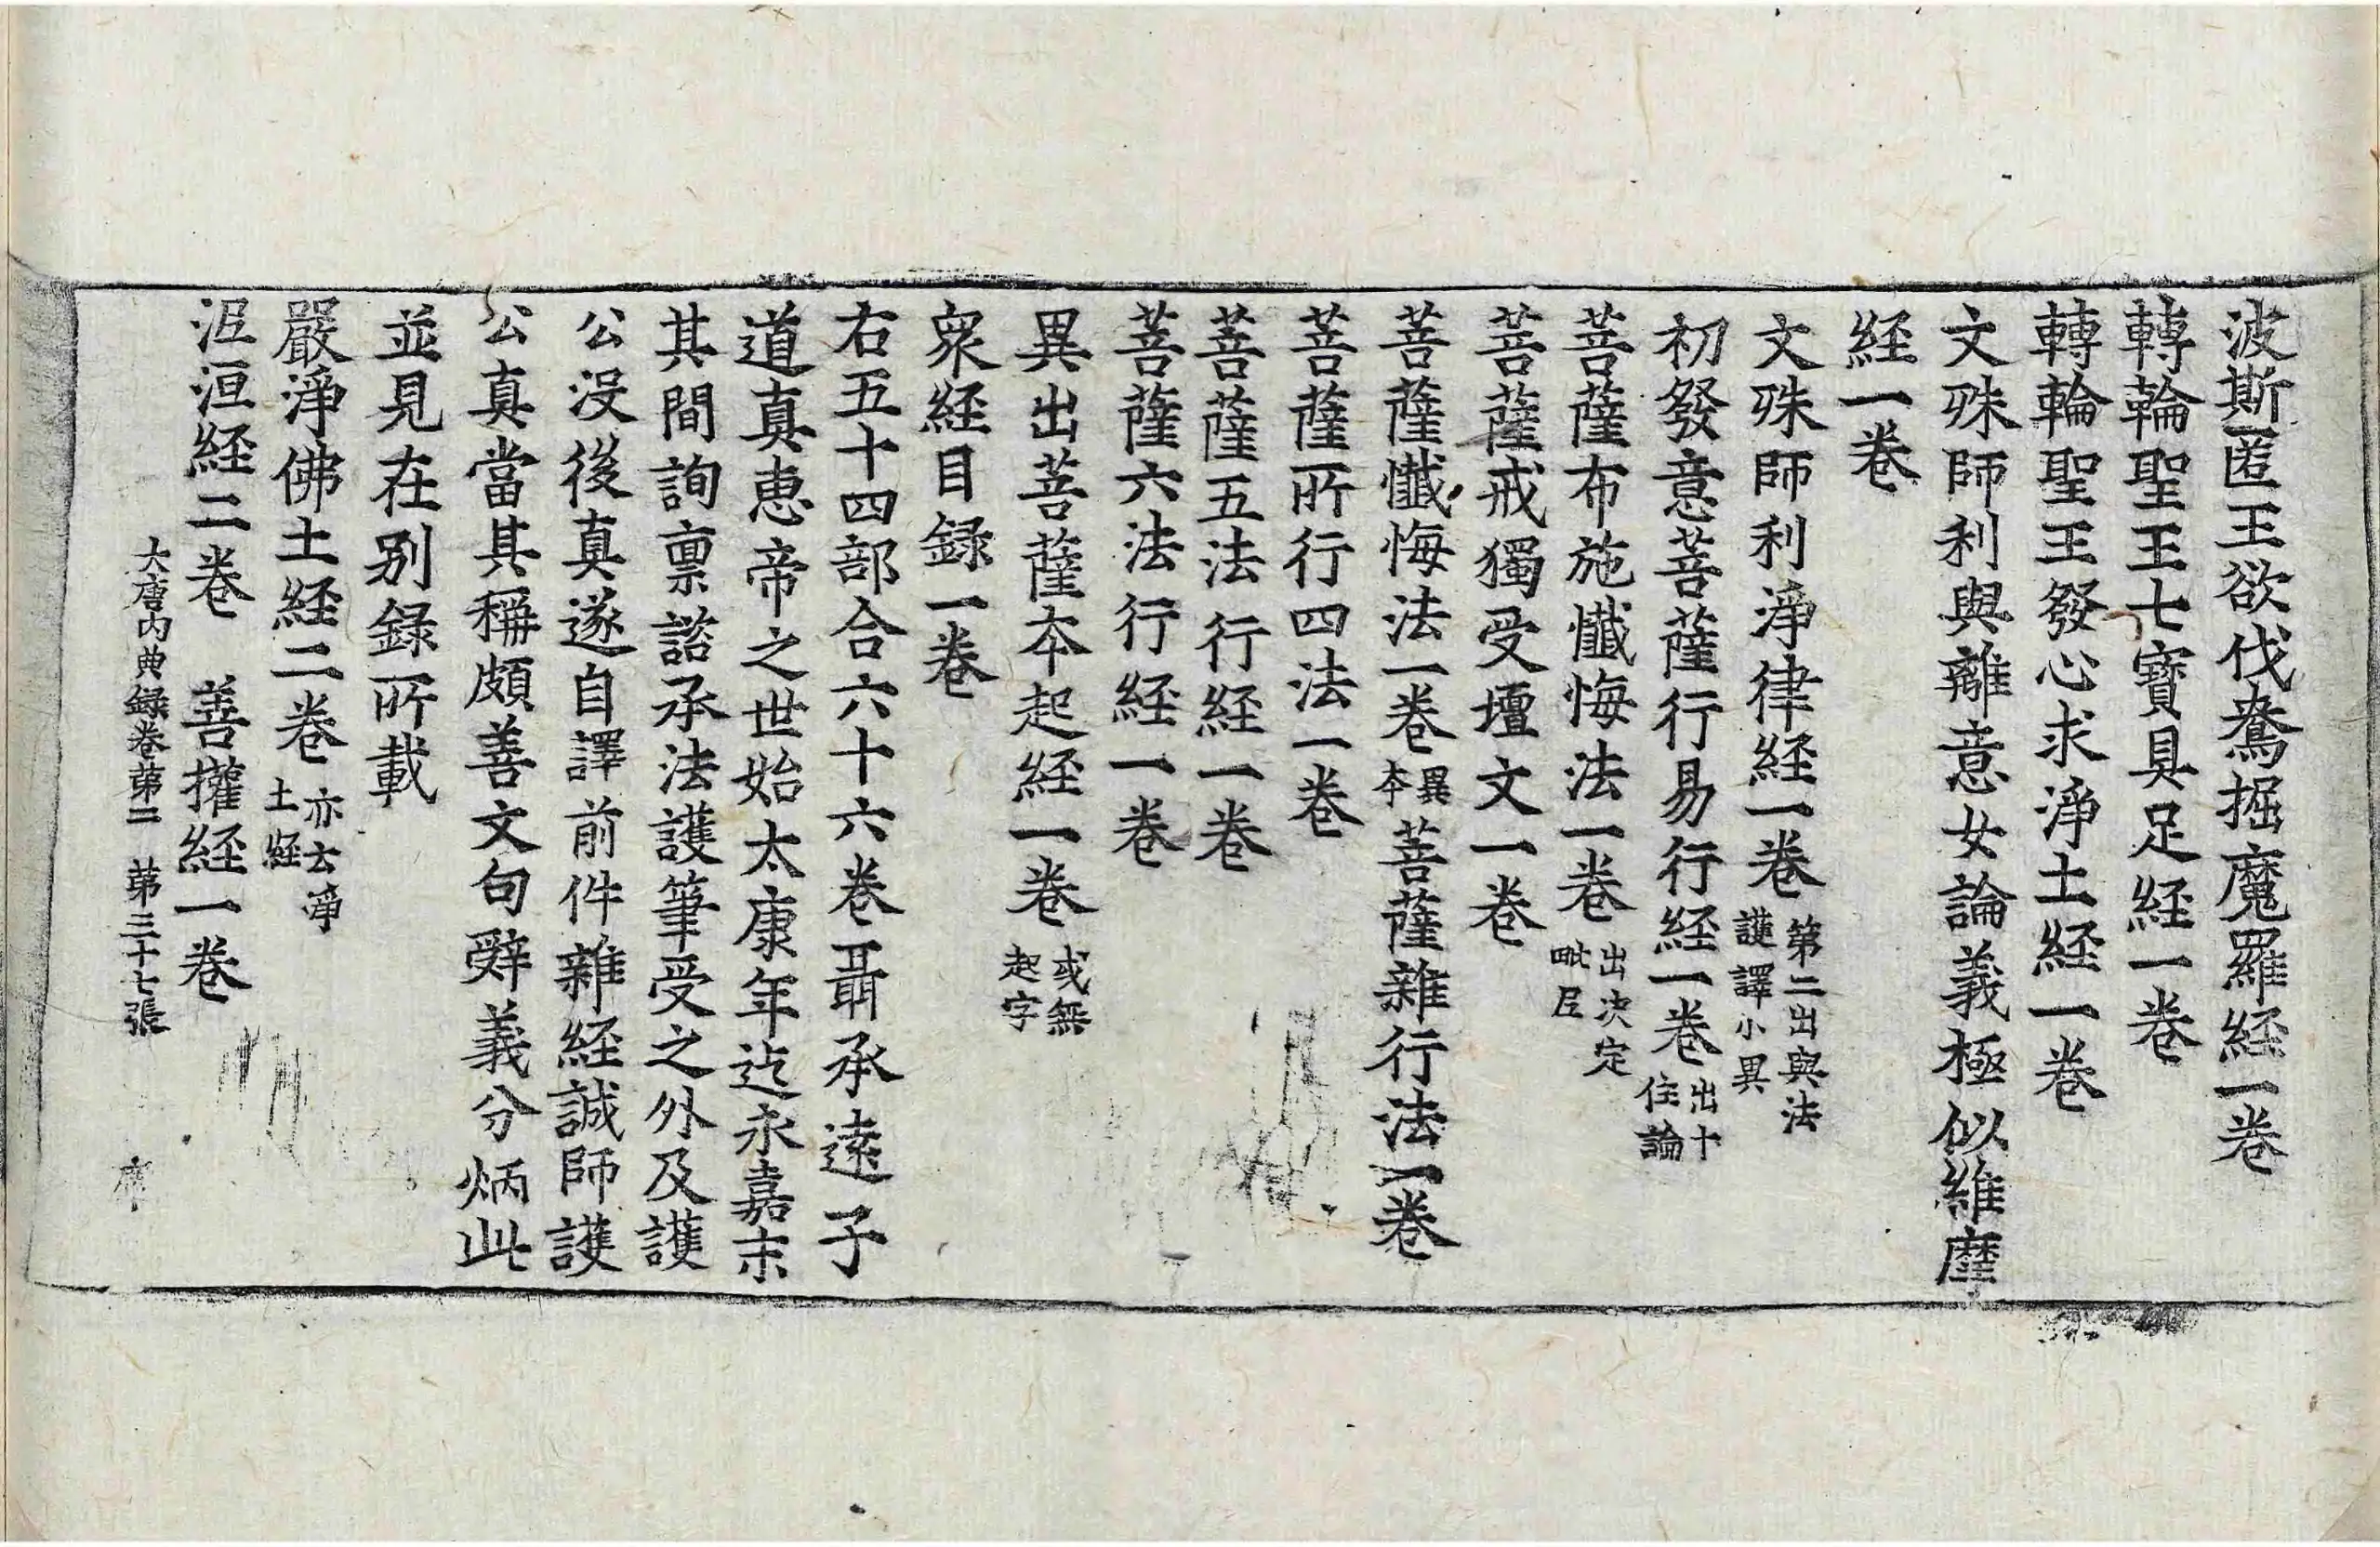 波斯匿王欲伐鴦掘魔羅経一卷
轉輪聖王七寶具足経一卷
轉輪聖王發心求淨土経一卷
文殊師利與離意女論義極似維摩
経一卷
文殊師利淨律経一卷第二出與法護譯小異
初發意菩薩行易行経一卷出十住論
菩薩布施懺悔法一卷出决定毗尼
菩薩戒獨受壇文一卷
菩薩懺悔法一卷異本菩薩雜行法一卷
菩薩所行四法一卷
菩薩五法行経一卷
菩薩六法行経一卷
異出菩薩本起経一卷或無起字
衆経目録一卷
右五十四部合六十六卷聶承遠子
道真惠帝之世始太康年迄永嘉末
其間詢禀諮承法護筆受之外及護
公没後真遂自譯前件雜経誠師護
公真當其稱頗善文句辭義分炳此
並見在别録所載
嚴淨佛土経二卷亦云淨土経
泥洹経二卷 善權経一卷
大唐内典録卷第二 第三十七張